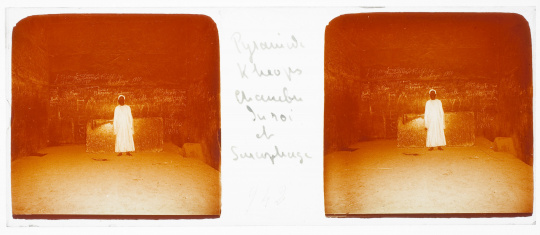 Pyramide
Kheops
chambre
du roi
et
Sarcophage